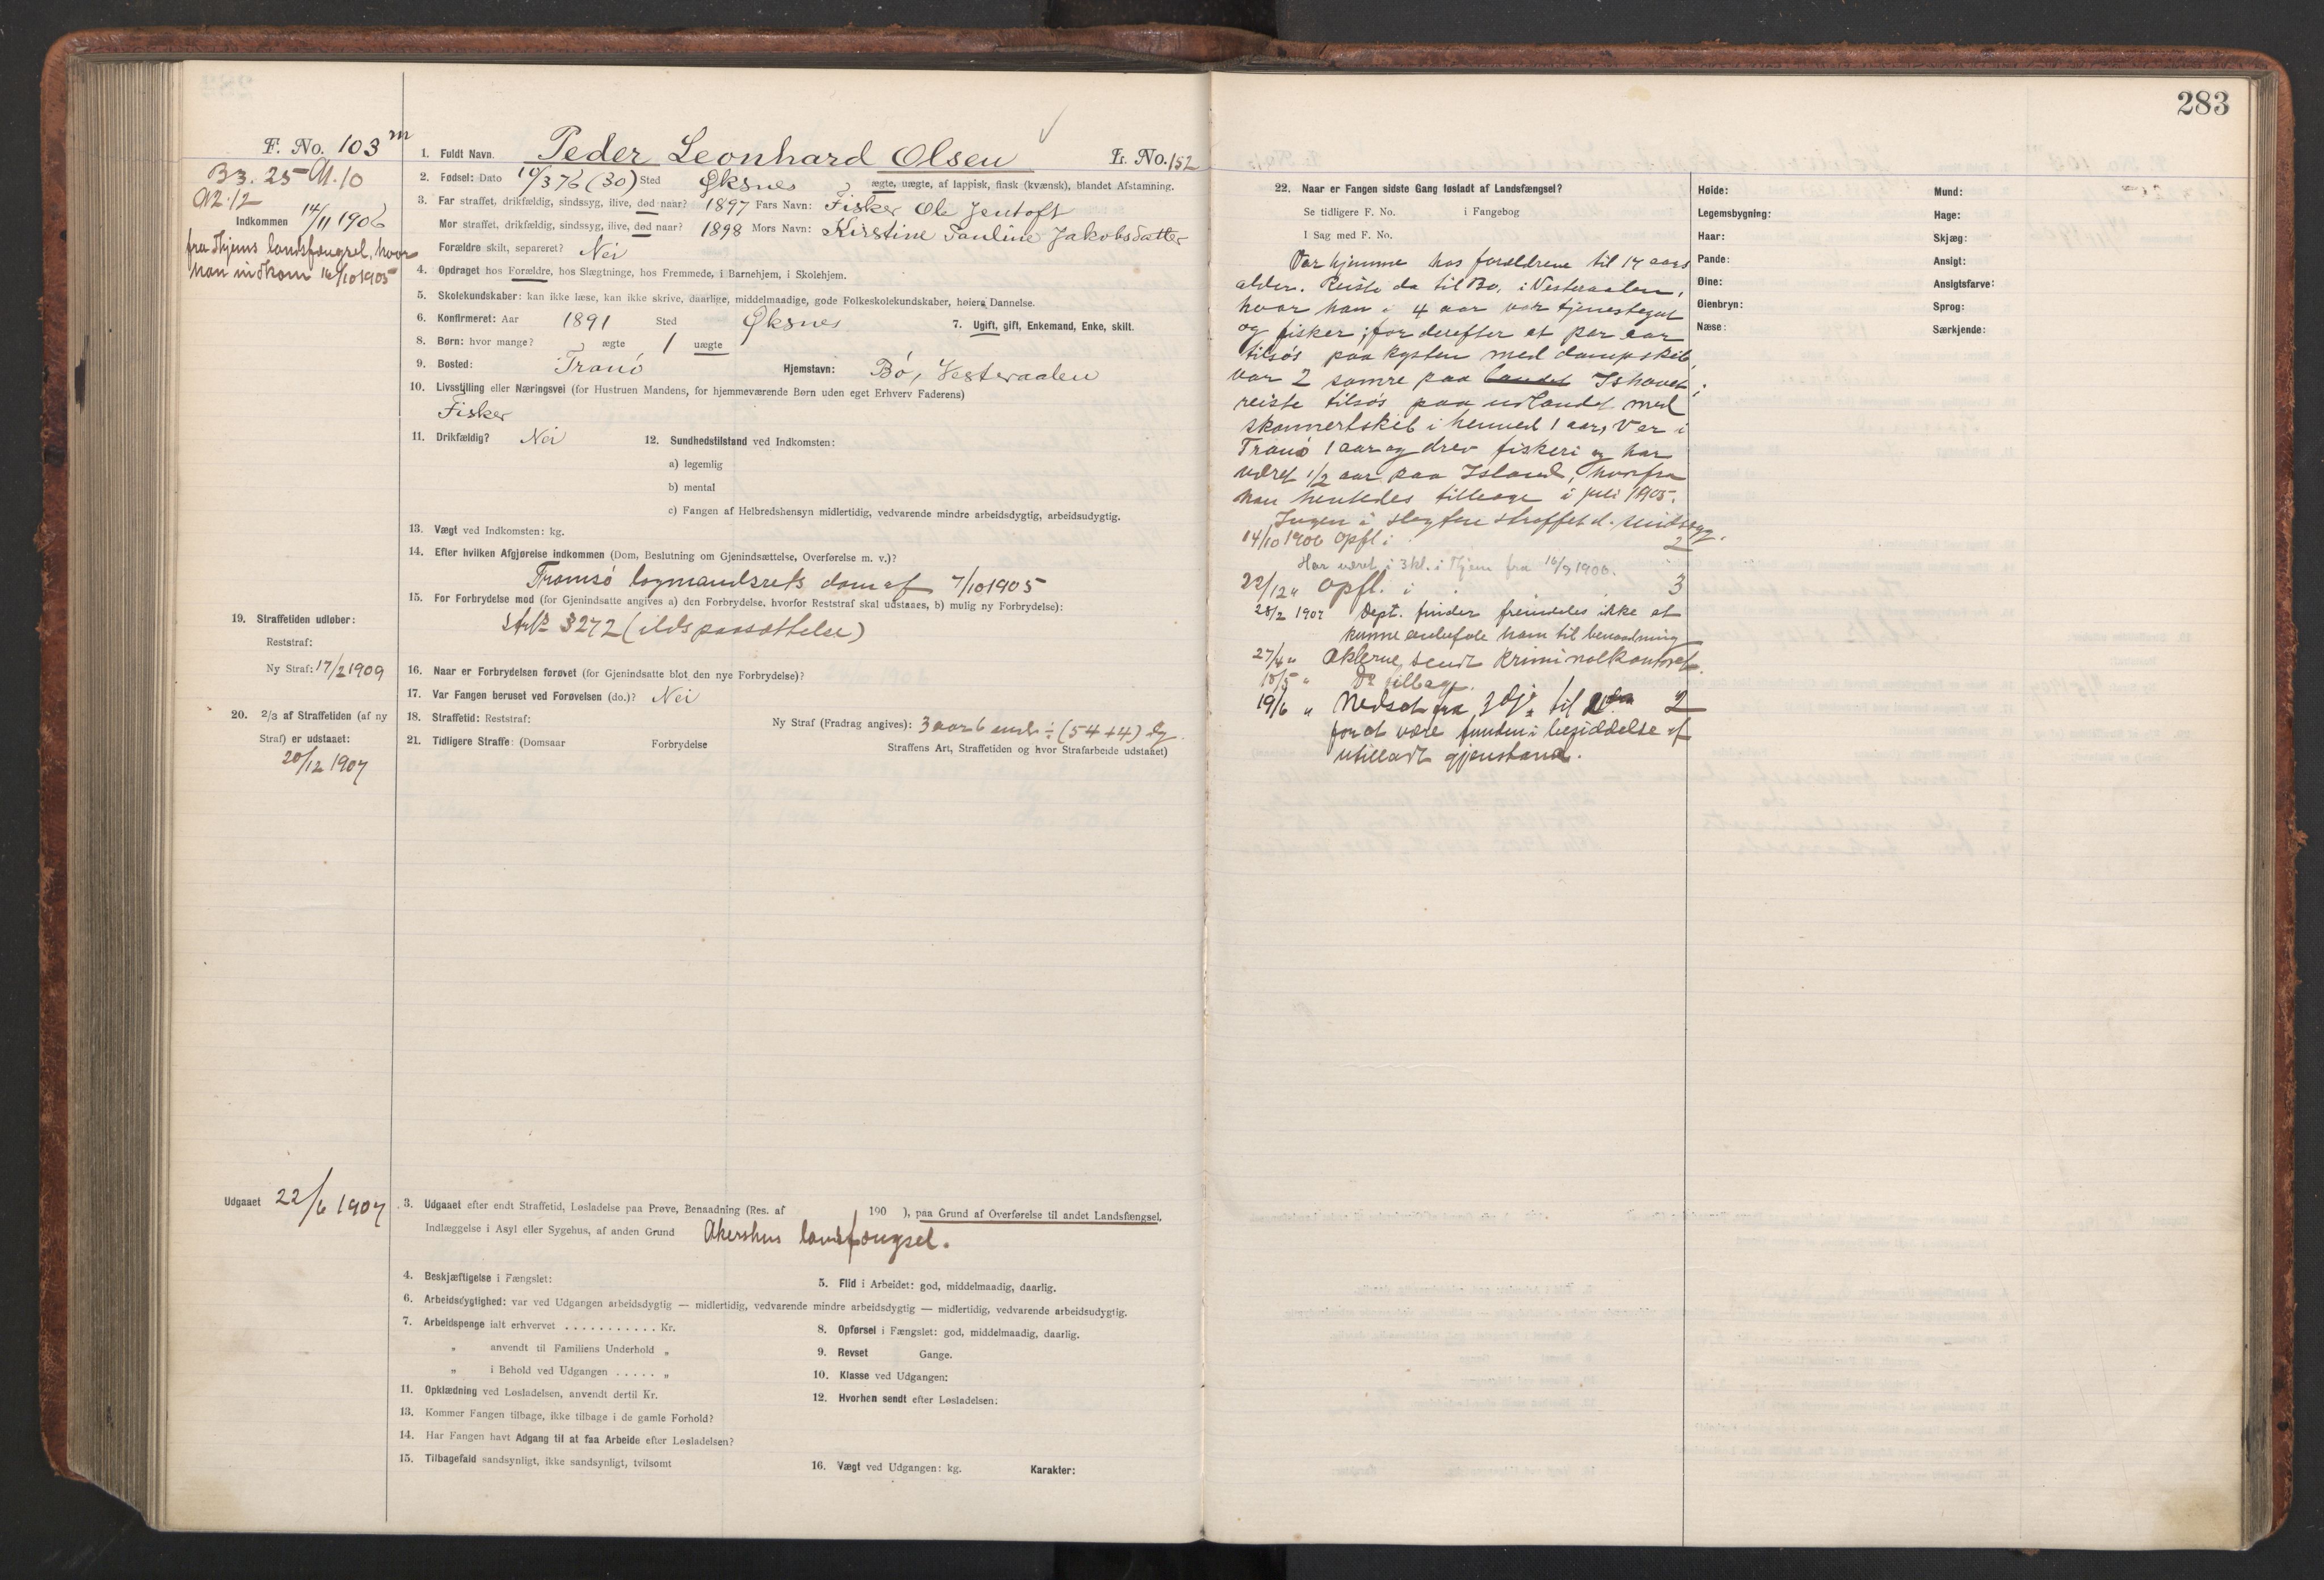 283
F. No. 103 m
B3. 25 A. 10
A2: 12
Indkommen 14/11 1906
fra Thjems landsfængsel, hvor
han indkom 16/10 1905
1. Fuldt Navn. Peder Leonhard Olsen L. No. 152
2. Fødsel: Dato 10/3 76 (30) Sted Øksnes ægte, uægte, af lappisk, finsk (kvænsk), blandet Afstamning.
3. Far straffet, drikfældig, sindssyg, ilive, død naar? 1897 Fars Navn: Fisker Ole Jentoft
Mor straffet, drikfældig, sindssyg, ilive, død naar? 1898 Mors Navn: Kirstine Pauline Jakobsdatter
Forældre skilt, separeret? Nei
4. Opdraget hos Forældre, hos Slægtninge, hos Fremmede, i Barnehjem, i Skolehjem.
5. Skolekundskaber: kan ikke læse, kan ikke skrive, daarlige, middelmaadige, gode Folkeskolekundskaber, høiere Dannelse.
6. Konfirmeret: Aar 1891 Sted Øksnes 7. Ugift, gift, Enkemand, Enke, skilt.
8. Børn: hvor mange? ægte 1 uægte
9. Bosted: Tranö Hjemstavn: Bø, Vesteraalen
10. Livsstilling eller Næringsvei (for Hustruen Mandens, for hjemmeværende Børn uden eget Erhverv Faderens)
Fisker
11. Drikfældig? Nei 12. Sundhedstilstand ved Indkomsten:
a) legemlig
b) mental
c) Fangen af Helbredshensyn midlertidig, vedvarende mindre arbeidsdygtig, arbeidsudygtig.
13. Vægt ved Indkomsten: kg.
14. Efter hvilken Afgjørelse indkommen (Dom, Beslutning om Gjenindsættelse, Overførelse m. v.)?
Tromsö lagmandsrets dom af 7/10 1905
15. For Forbrydelse mod (for Gjenindsatte angives a) den Forbrydelse, hvorfor Reststraf skal udstaaes, b) mulig ny Forbrydelse):
§ 272 (ildspaasættelse)
19. Straffetiden udløber:
Reststraf:
Ny Straf: 17/2 1909
16. Naar er Forbrydelsen forøvet (for Gjenindsatte blot den nye Forbrydelse)?
17. Var Fangen beruset ved Forøvelsen (do.)? Nei
20. 2/3 af Straffetiden (af ny
Straf) er udstaaet:
20/12 1907
18. Straffetid: Reststraf: Ny Straf (Fradrag angives): 3 aar 6 mdr ÷ (54+4) dg.
21. Tidligere Straffe: (Domsaar Forbrydelse Straffens Art, Straffetiden og hvor Strafarbeide udstaaet)
Udgaaet 22/6 1907
3. Udgaaet efter endt Straffetid, Løsladelse paa Prøve, Benaadning (Res. af 190 ), paa Grund af Overførelse til andet Landsfængsel,
Indlæggelse i Asyl eller Sygehus, af anden Grund Akershus landsfængsel.
4. Beskjæftigelse i Fængslet: 5. Flid i Arbeidet: god, middelmaadig, daarlig.
6. Arbeidsdygtighed: var ved Udgangen arbeidsdygtig — midlertidig, vedvarende mindre arbeidsdygtig — midlertidig, vedvarende arbeidsudygtig.
7. Arbeidspenge ialt erhvervet . . . . . . . . . . . Kr. 8. Opførsel i Fængslet: god, middelmaadig, daarlig.
„ anvendt til Familiens Underhold „ 9. Revset Gange.
„ i Behold ved Udgangen . . . . . „ 10. Klasse ved Udgangen:
11. Opklædning ved Løsladelsen, anvendt dertil Kr. 12. Hvorhen sendt efter Løsladelsen:
13. Kommer Fangen tilbage, ikke tilbage i de gamle Forhold?
14. Har Fangen havt Adgang til at faa Arbeide efter Løsladelsen?
15. Tilbagefald sandsynligt, ikke sandsynligt, tvilsomt 16. Vægt ved Udgangen: kg. Karakter:
22. Naar er Fangen sidste Gang løsladt af Landsfængsel?
Se tidligere F. No. i Fangebog
I Sag med F. No.
Var hjemme hos forældrene til 17 aars
alder. Reiste da til Bø, i Vesteraalen,
hvor han i 4 aar var tjenestegut
og fisker; for derefter et par aar
tilsös paa kysten med dampskib,
var 2 somre paa landet Ishavet;
reiste tilsös paa udlandet med
skonnertskib i henved 1 aar, Var i
Tranö 1 aar og drev fiskeri og har
været 1/2 aar paa Island, hvorfra
han hentedes tilbage i juli 1905.
Ingen i slegten straffet el. sindssyg.
14/10 1906 Opfl. i 2
Har været i 3 kl. i Thjem fra 16/9 1906.
22/12 „ Opfl. i 3
28/2 1907 Dept. finder fremdeles ikke at
kunne anbefale ham til benaadning
27/4 „ Akterne sendt Kriminalkontoret.
18/5 „ Do tilbage.
19/6 „ Nedsat fra 3dje til 2
for at være funden i besiddelse af
utilladt gjenstand.
Høide: Mund:
Legemsbygning: Hage:
Haar: Skjæg:
Pande: Ansigt:
Øine: Ansigtsfarve:
Øienbryn: Sprog:
Næse: Særkjende: